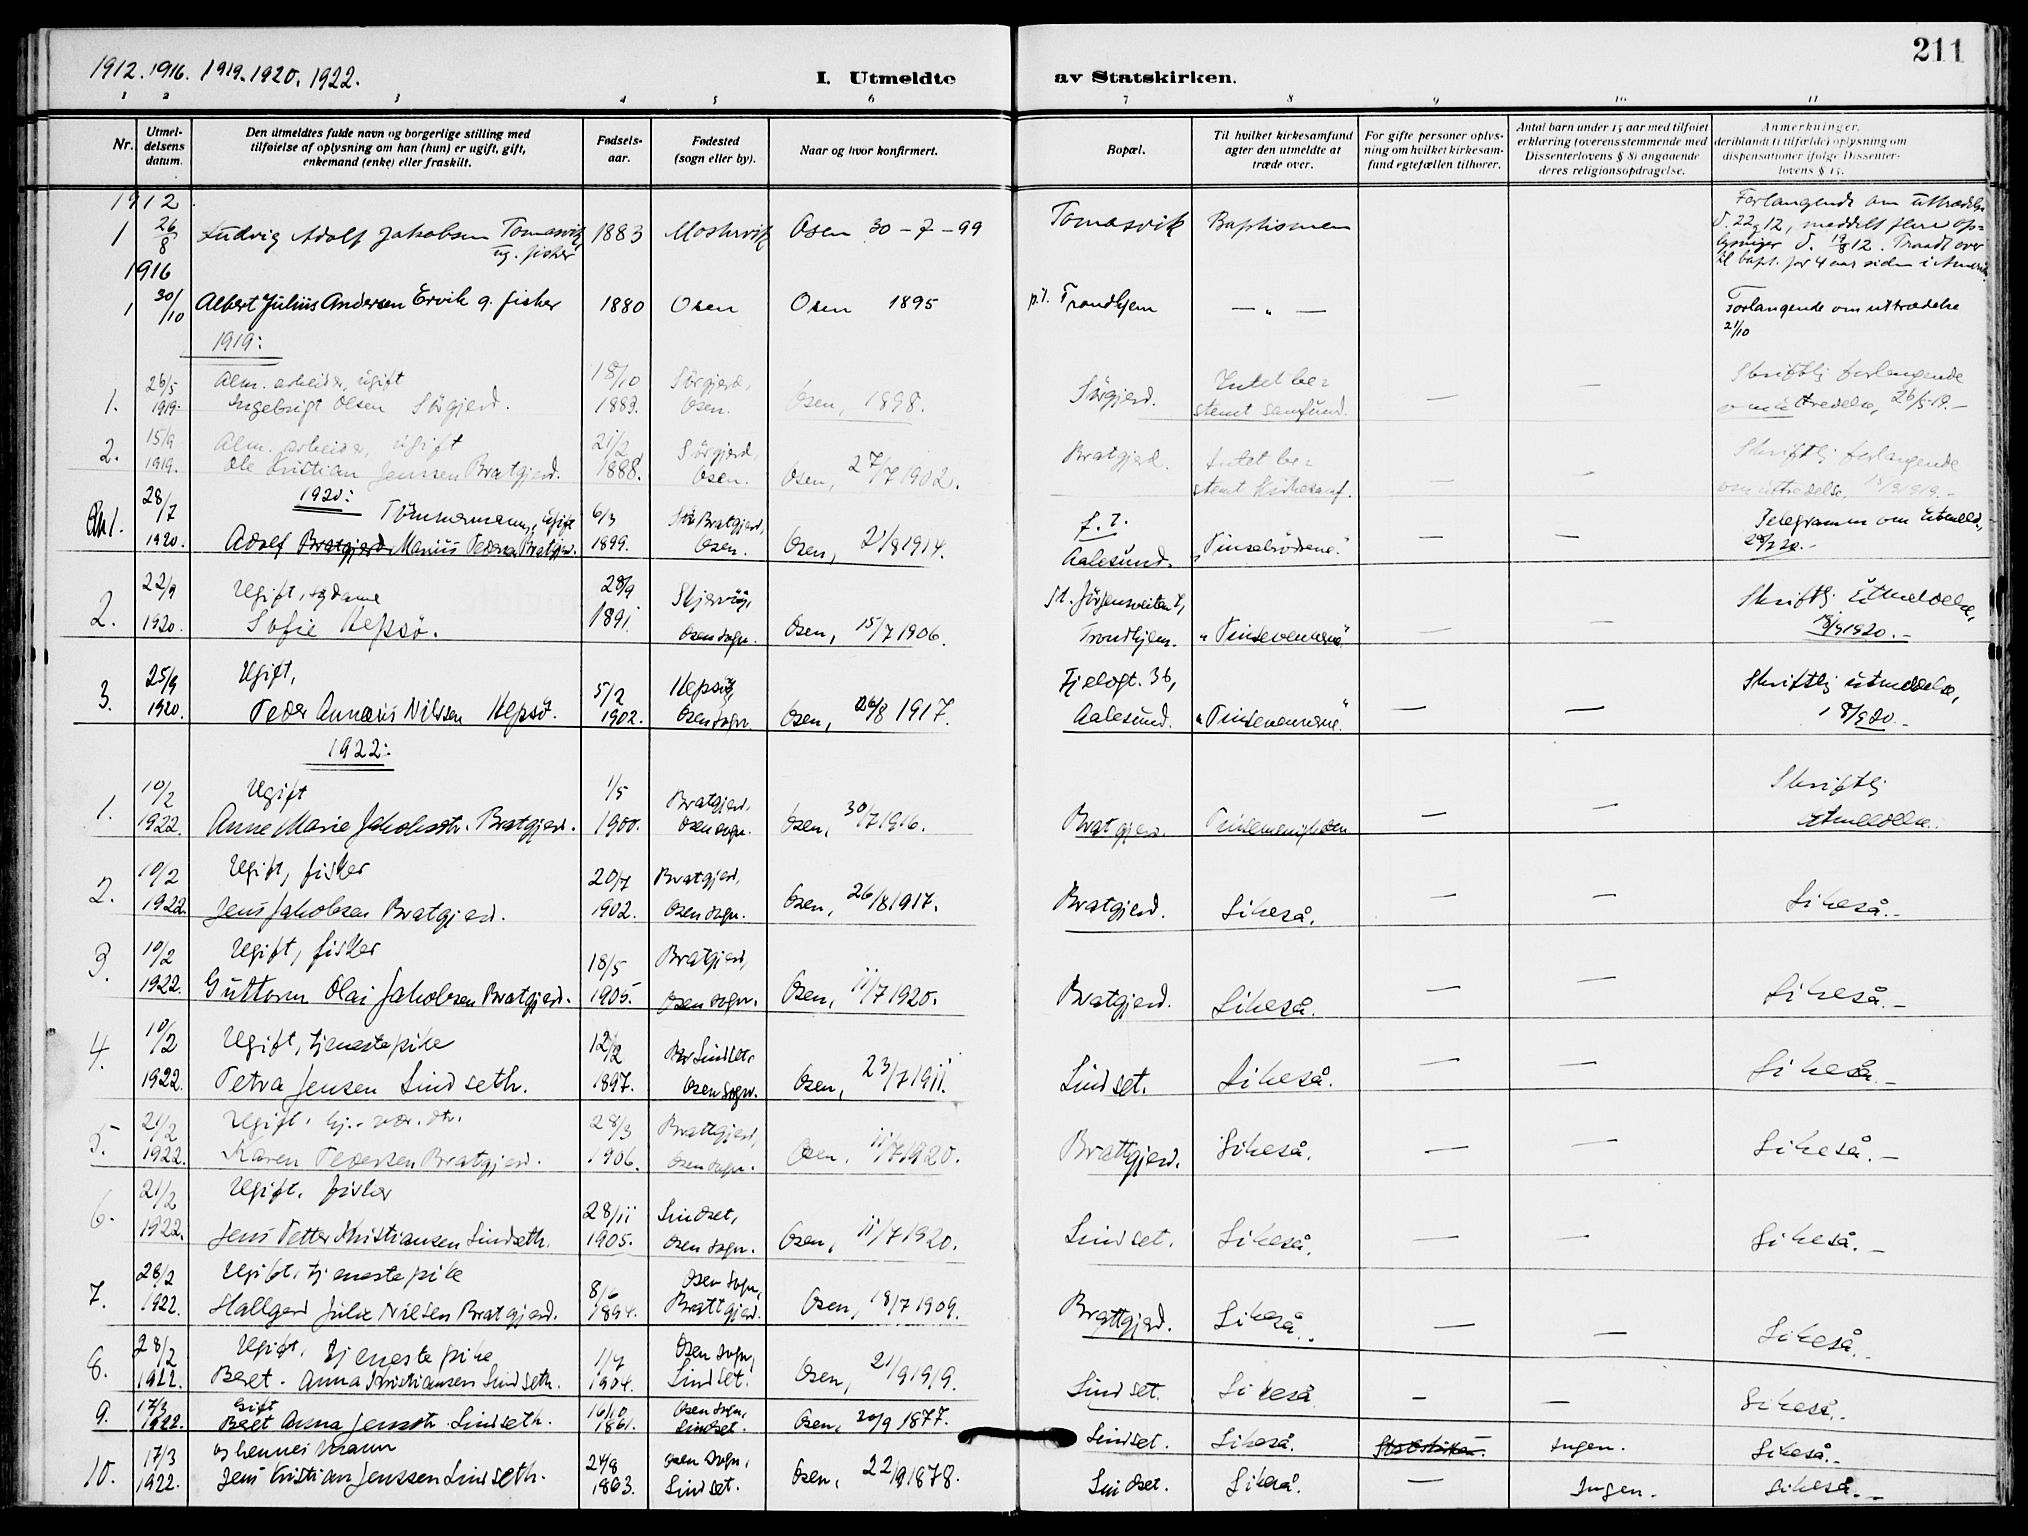 1912. 1916. 1919. 1920. 1922.
I. Utmeldte av Statskirken.
211
1 2 3 4 5 6 7 8 9 10 11
Nr.
Utmel-
delsens
datum.
Den utmeldtes fulde navn og borgerlige stilling med
tilføielse af oplysning om han (hun) er ugift, gift,
enkemand (enke) eller fraskilt.
Fødsels-
aar.
Fødested
(sogn eller by).
Naar og hvor konfirmert.
Bopæl.
Til hvilket kirkesamfund
agter den utmeldte at
træde over.
For gifte personer oplys-
ning om hvilket kirkesam-
fund egtefællen tilhører.
Antal barn under 15 aar med tilføiet
erklæring (overensstemmende med
Dissenterlovens § 8) angaaende
deres religionsopdragelse.
Anmerkninger,
deriblandt (i tilfælde) oplysning om
dispensationer ifølge Dissenter-
lovens § 15.
1912
1 26/8 Ludvig Adolf Jakobsen Tomasvik, ug. fisker 1883 Mostervik Osen 30-7-99 Tomasvik Baptismen
Forlangende om uttrædelse
d. 22/7 12, meddelt flere op-
lysninger d. 19/8 12. Traadt over
til bapt. for 4 aar siden i Amerika
1916
1 30/10 Albert Julius Andersen Ervik g. fisker 1880 Osen Osen 1895 p.t. Trondhjem — „ — Forlangende om uttrædelse
21/10
1919:
1. 26/5 1919. Alm. arbeider, ugift
Ingebrigt Olsen Sørgjerd. 18/10 1883. Sørgjerd, Osen. Osen, 1898. Sørgjerd. Intet be-
stemt samfund. — — Skriftlig forlangende
om utredelse, 26/5-19.-
2. 15/9 1919. Alm. arbeider, ugift
Ole Kristian Jenssen Bratgjerd. 21/2 1888. Sørgjerd, Osen. Osen, 27/7 1902. Bratgjerd. Intet be-
stemt kirkesamf. — — Skriftlig forlangende
om uttredelse, 15/9 1919.-
1920:
1. 28/7 1920. Tömmermann, ugift
Adolf Bratgjerd Marius Pedersen Bratgjerd. 6/3 1899. Bratgjerd, Osen. Osen, 2/8 1914. p.t.
Aalesund. „Pinsebrødrene." — — Telegramm om utmeld.,
28/7 20.-
2. 22/9 1920. Ugift, sydame
Sofie Hepsö. 28/9 1891. Skjervøy, Osen sogn. Osen, 15/7 1906. St. Jörgensveiten 4,
Trondhjem. „Pinsevennerne" — — Skriftlig utmeldelse,
18/9 1920.-
3. 25/9 1920. Ugift,
Peder Annæus Nilssen Hepsö. 5/2 1902. Hepsö, Osen sogn. Osen, 26/8 1917. Fjelogt. 36,
Aalesund. „Pinsevennerne." — — Skriftlig utmeldelse,
18/9 20.-
1922:
1. 10/2 1922. Ugift
Anne Marie Jakobsdtr. Bratgjerd. 1/5 1900. Bratgjerd, Osen sogn. Osen, 30/7 1916. Bratgjerd. Pinsemenigheten — — Skriftlig
utmeldelse.
2. 10/2 1922. Ugift, fisker
Jens Jakobsen Bratgjerd. 20/7 1902. Bratgjerd, Osen sogn. Osen, 26/8 1917. Bratgjerd. Likeså. — — Likeså.-
3. 10/2 1922. Ugift, fisker
Guttorm Olai Jakobsen Bratgjerd. 18/5 1905. Bratgjerd, Osen sogn. Osen, 11/7 1920. Bratgjerd. Likeså. — — Likeså.-
4. 10/2 1922. Ugift, tjenestepike
Petra Jensen Lindseth. 12/2 1897. Lindset, Osen sogn. Osen, 23/7 1911. Lindset. Likeså. — — Likeså.-
5. 21/2 1922. Ugift, hj.-vær. dtr.
Karen Pedersen Bratgjerd. 28/3 1906. Brattgjerd, Osen sogn. Osen, 11/7 1920. Brattgjerd. Likeså. — — Likeså.-
6. 21/2 1922. Ugift, fisker
Jens Petter Kristiansen Lindseth. 28/11 1905. Lindset, Osen sogn. Osen, 11/7 1920. Lindset. Likeså. — — Likeså.-
7. 28/2 1922. Ugift, tjenestepike
Hallgerd Julie Nilsen Bratgjerd. 8/6 1894. Osen sogn, Brattgjerd. Osen, 18/7 1909. Brattgjerd. Likeså. — — Likeså.-
8. 28/2 1922. Ugift, tjenestepike
Beret Anna Kristiansen Lindseth. 1/7 1904. Osen sogn, Lindset. Osen, 21/9 1919. Lindset. Likeså — — Likeså.-
9. 17/3 1922. Gift
Beret Anna Jensdtr. Lindseth. 16/10 1861. Osen sogn, Lindset. Osen, 20/9 1877. Lindset. Likeså. Statskirken. Ingen. Likeså.-
10. 17/3 1922. og hennes mann
Jens Kristian Jenssen Lindseth. 24/8 1863. Osen sogn, Lindset. Osen, 22/9 1878. Lindset. Likeså. — Ingen. Likeså.-